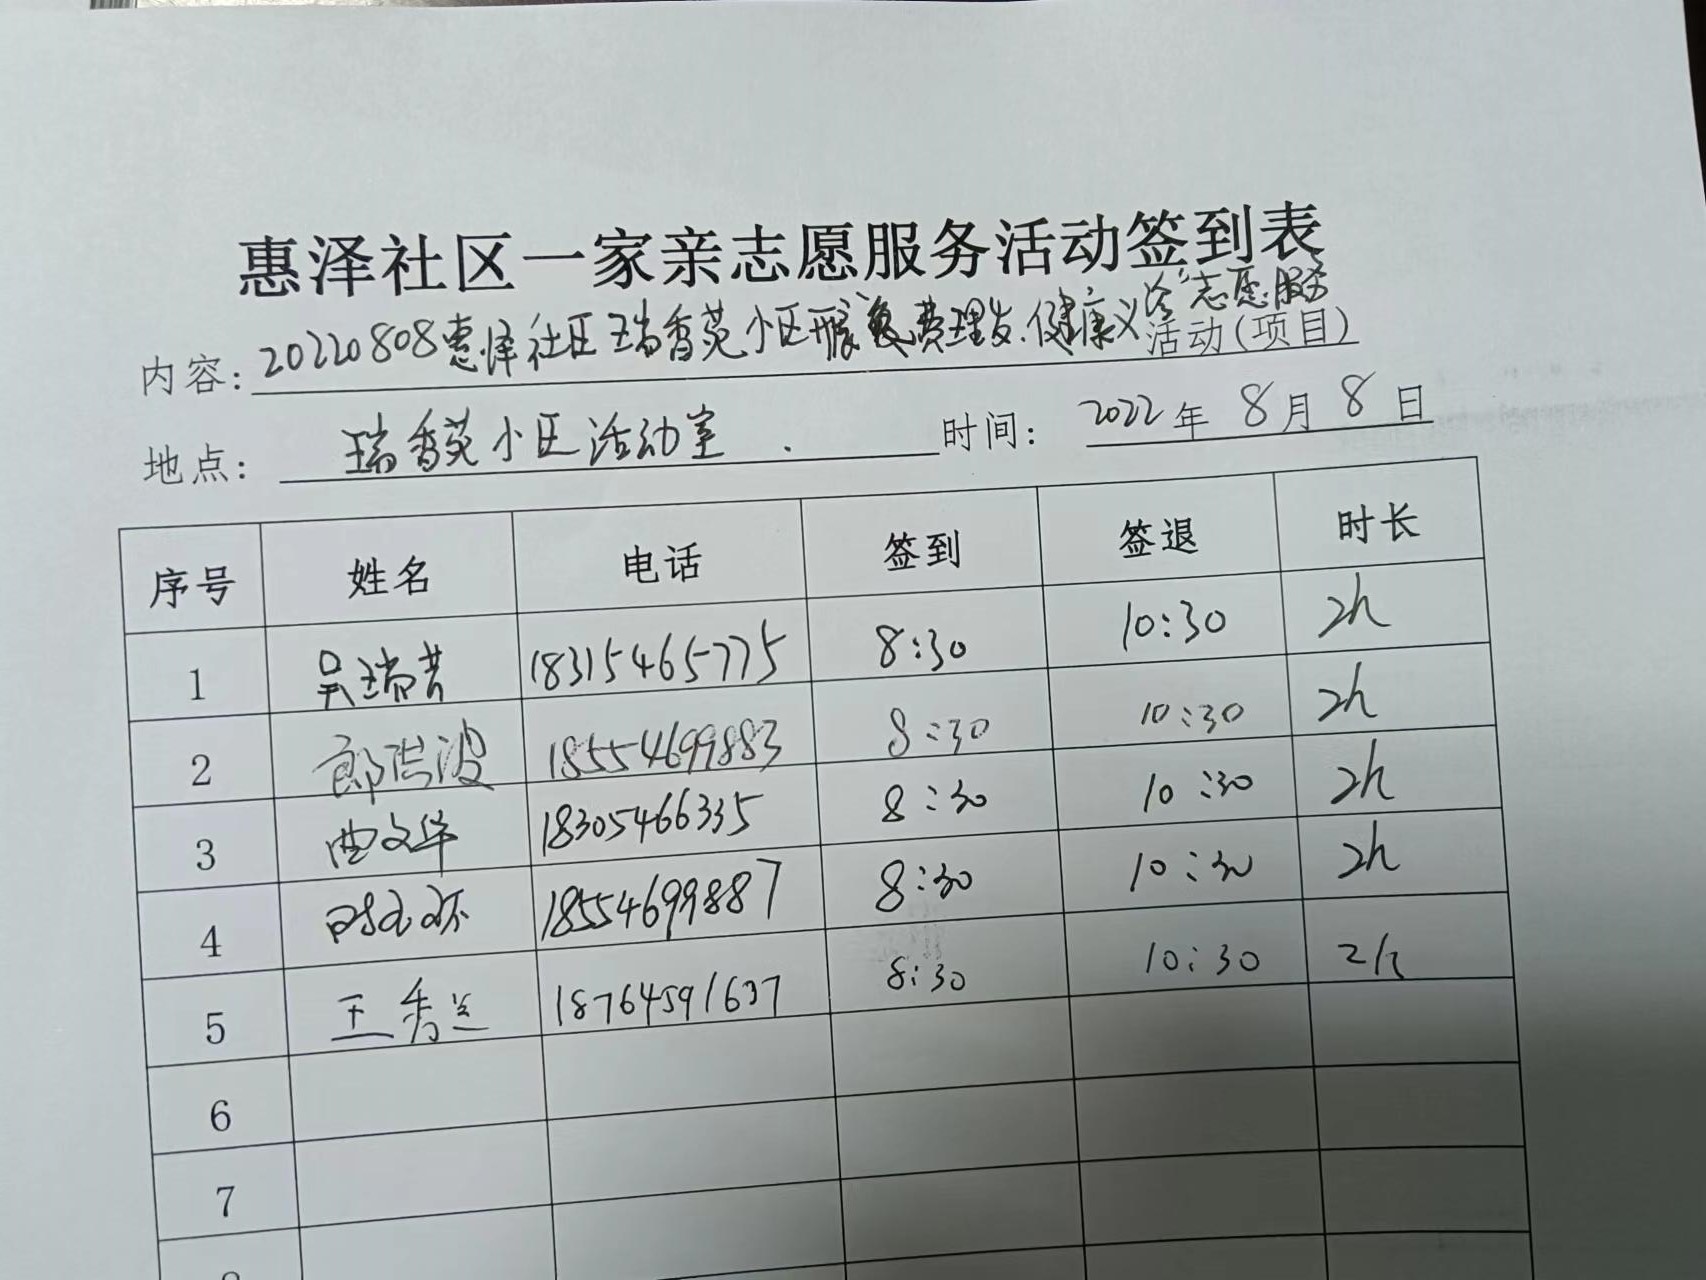 惠泽社区一家亲志愿服务活动签到表
内容: 20220808惠泽社区瑞香苑小区开展"免费理发.健康义诊"志愿服务活动(项目)
地点: 瑞香苑小区活动室. 时间: 2022年8月8日
序号 姓名 电话 签到 签退 时长
1 吴瑞 18315465775 8:30 10:30 2h
2 郎洪波 18554699883 8:30 10:30 2h
3 曲文华 18305466335 8:30 10:30 2h
4 18554699887 8:30 10:30 2h
5 王秀兰 18764591637 8:30 10:30 2h
6
7